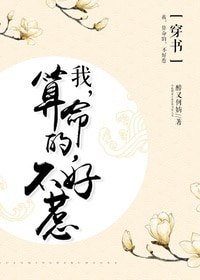 【穿书】
我,算命的,不好惹
醉又何妨/著
我,算命的,不好惹